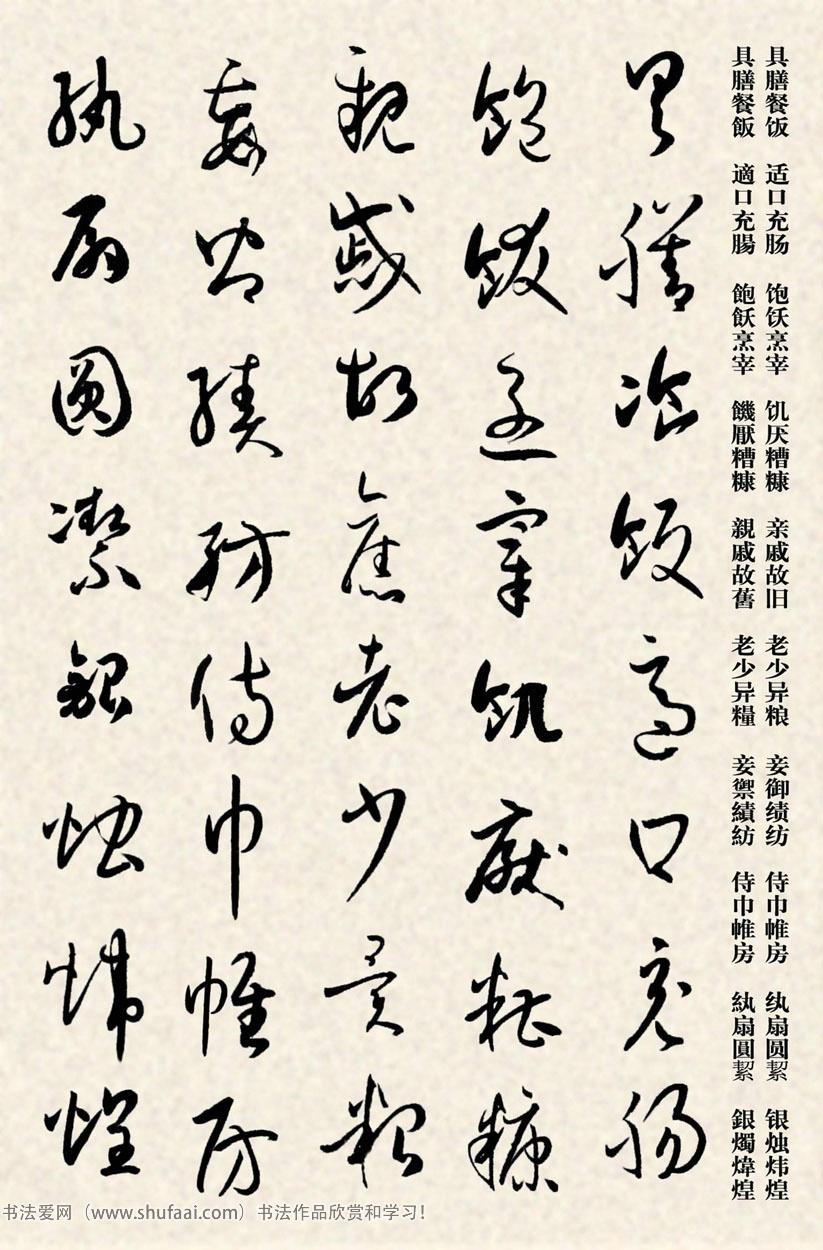 具膳餐饭 适口充肠 饱饫烹宰 饥厌糟糠 亲戚故旧 老少异粮 妾御绩纺 侍巾帷房 纨扇圆絜 银烛炜煌
具膳餐飯 適口充腸 飽飫烹宰 饑厭糟糠 親戚故舊 老少异糧 妾禦績紡 侍巾帷房 紈扇圓絜 銀燭煒煌
具膳飡飯適口充腸
飽飫烹宰飢厭糟糠
親戚故舊老少異粮
妾御績紡侍巾帷房
紈扇圓潔銀燭煒煌
书法爱网（www.shufaai.com）书法作品欣赏和学习！